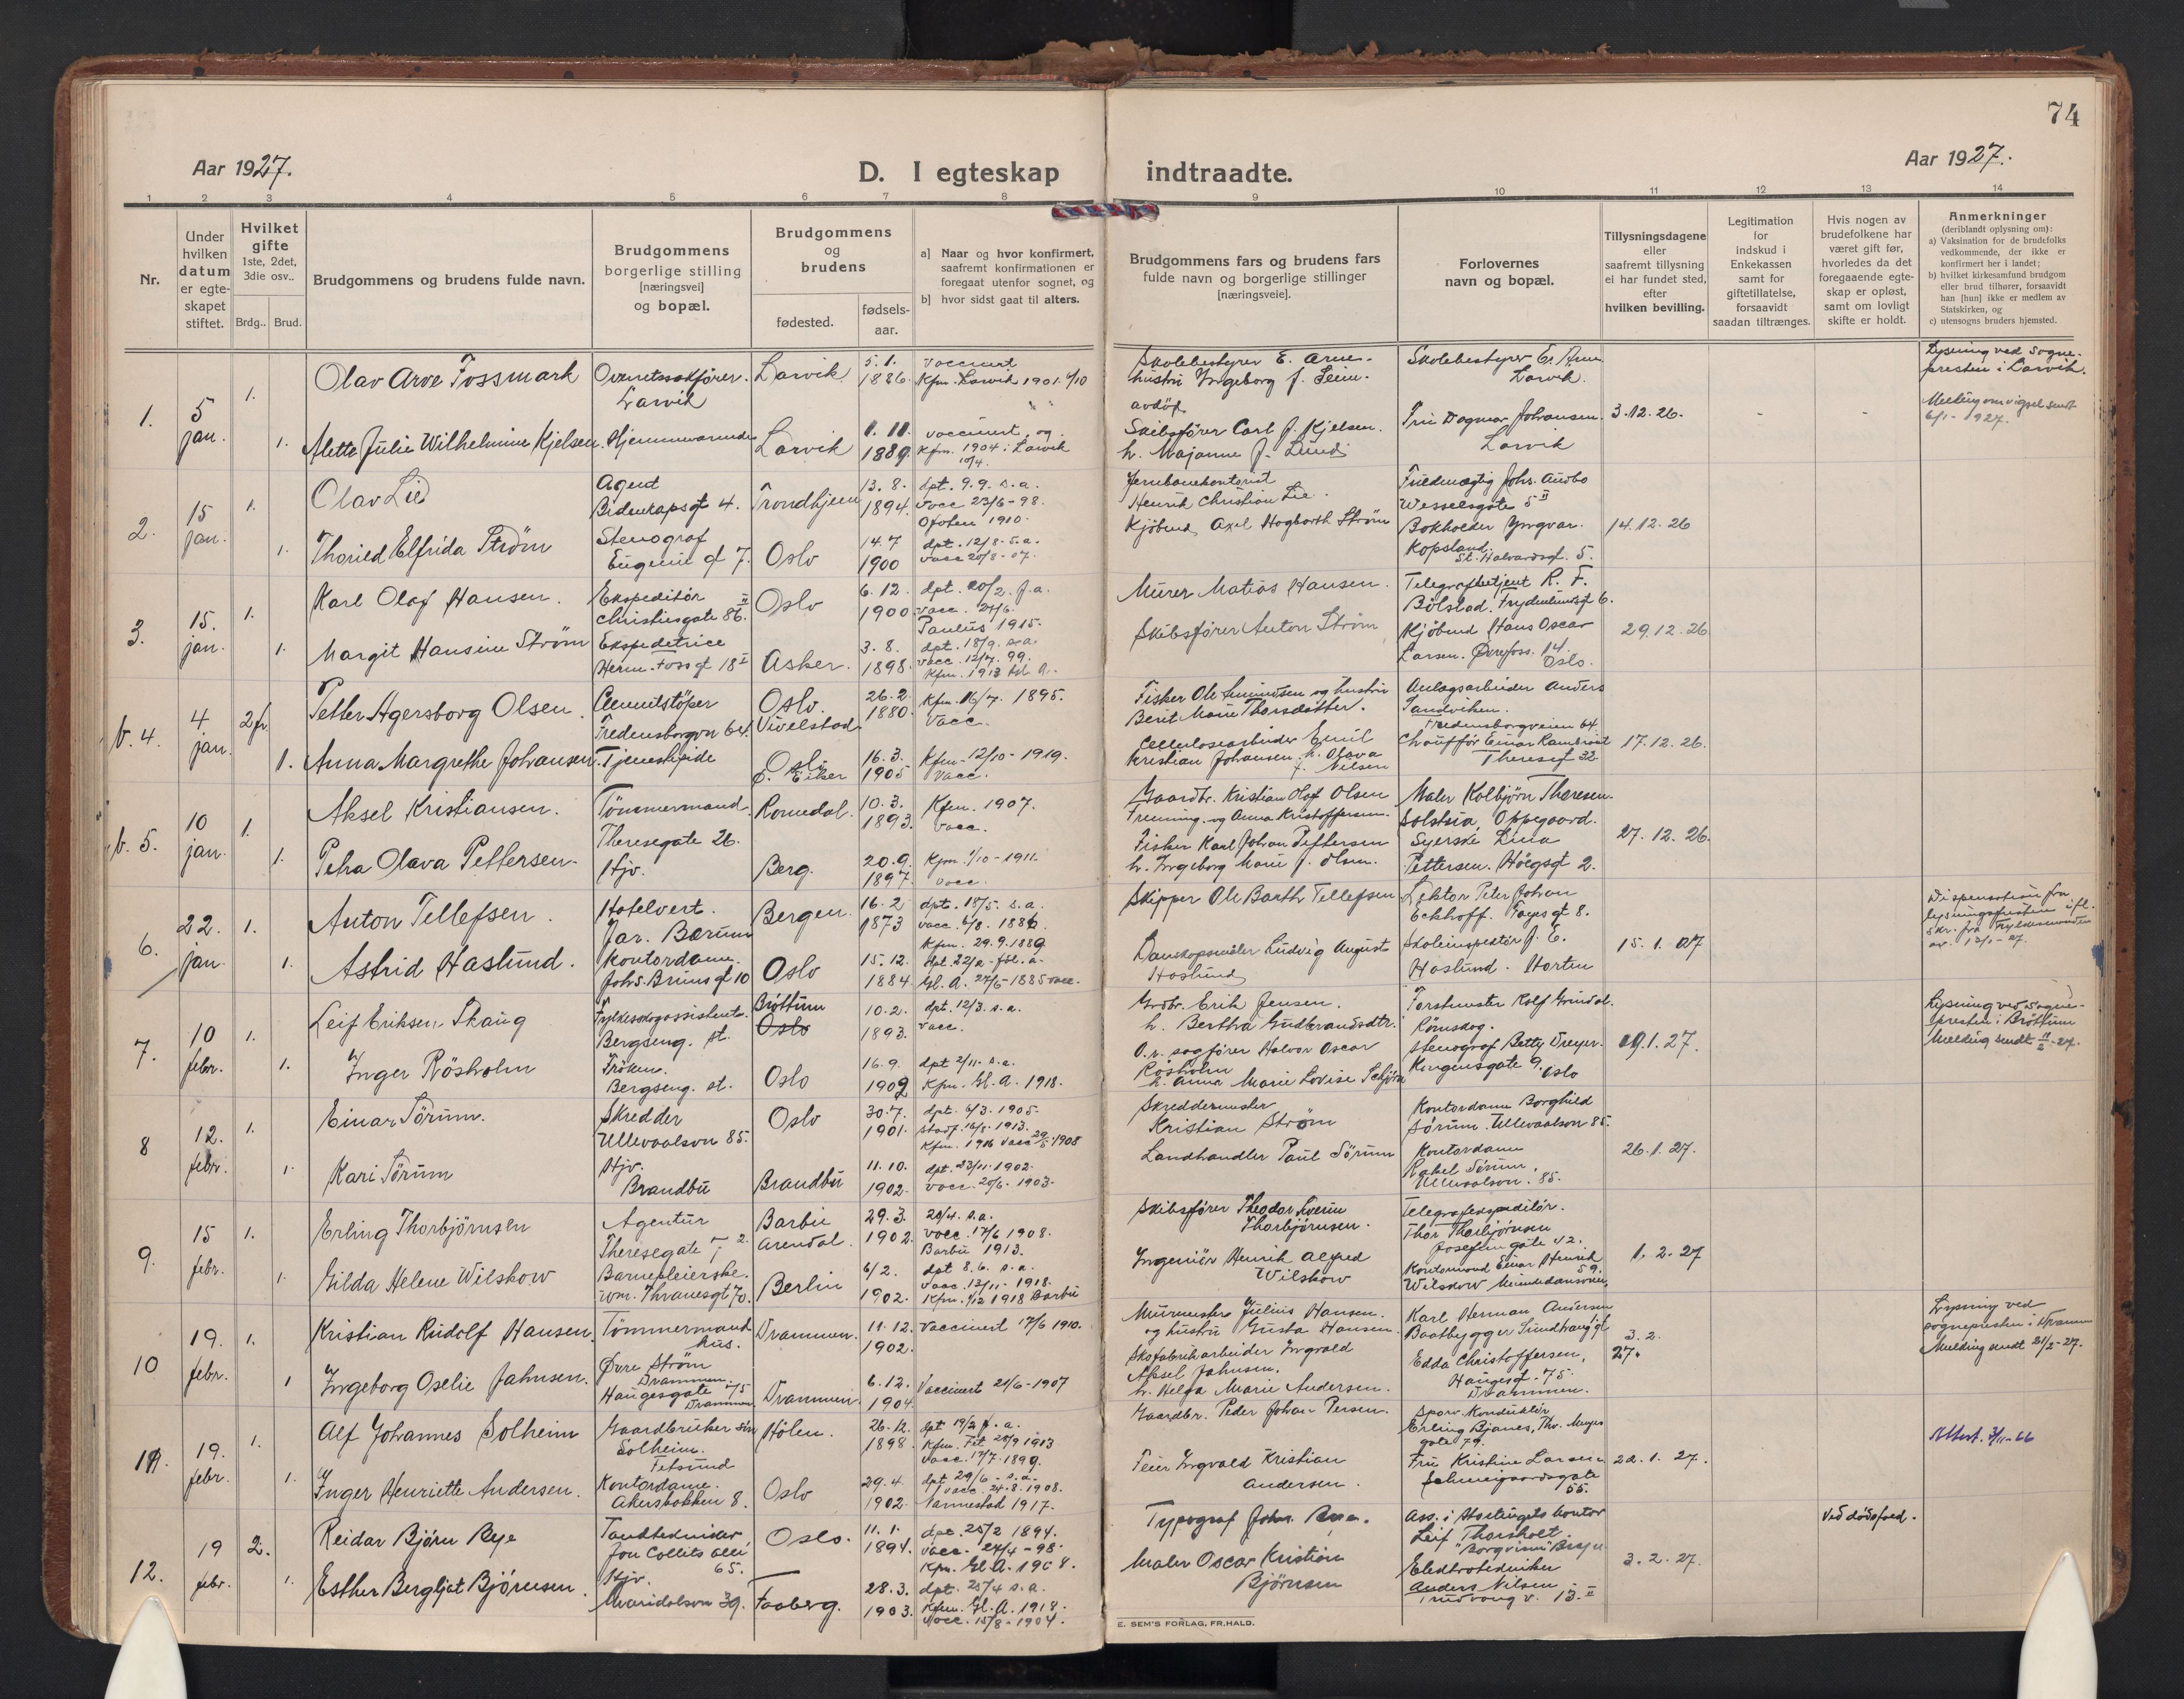 74
Aar 1927.
D. I egteskap indtraadte.
Aar 1927.
1 2 3 4 5 6 7 8 9 10 11 12 13 14
Nr.
Under hvilken datum er egte-skapet stiftet.
Hvilket gifte 1ste, 2det, 3die osv..
Brdg.. Brud.
Brudgommens og brudens fulde navn.
Brudgommens borgerlige stilling [næringsvei] og bopæl.
Brudgommens og brudens
fødested.
fødsels-aar.
a] Naar og hvor konfirmert, saafremt konfirmationen er foregaat utenfor sognet, og
b] hvor sidst gaat til alters.
Brudgommens fars og brudens fars fulde navn og borgerlige stillinger [næringsveie].
Forlovernes navn og bopæl.
Tillysningsdagene eller saafremt tillysning ei har fundet sted, efter hvilken bevilling.
Legitimation for indskud i Enkekassen samt for giftetillatelse, forsaavidt saadan tiltrænges.
Hvis nogen av brudefolkene har været gift før, hvorledes da det foregaaende egte-skap er opløst, samt om lovligt skifte er holdt.
Anmerkninger (deriblandt oplysning om):
a) Vaksination for de brudefolks vedkommende, der ikke er konfirmert her i landet;
b) hvilket kirkesamfund brudgom eller brud tilhører, forsaavidt han [hun] ikke er medlem av Statskirken, og
c) utensogns bruders hjemsted.
1. 5 jan. 1. Olav Arve Fossmark Overretssakfører. Larvik Larvik 5.1. 1886. vaccinert Kfm. Larvik 1901
Skolebestyrer E. Arne. hustru Ingeborg f. Seim. avdøf. Skolebestyrer Er. Arne Larvik.
Lysning ved sogne-presten i Larvik.
Melding om vigsel sendt 6/1 - 1927.
1. Alette Julie Wilhelmine Kjelsen. Hjemmeværende Larvik 1889 vaccinert og Kfm. 1904 i Larvik
Skibsfører Carl J. Kjelsen. h. Majanne f. Lund Fru Dagmar Johansen. Larvik 3.12.26.
2. 15 jan. 1. Olav Lie Agent Bidenkapsgt 4. Trondhjem 13.8. 1894. dpt. 9.9. s.a. vacc 23/6-98. Ofoten 1910.
Jernbanekontorist Henrik Christian Lie. Fuldmægtig Johs. Aadbo Wesselsgate 5 II
1. Thorild Elfrida Strøm Stenograf Eugenie gt 7. Oslo 14.7 1900 dpt. 12/8. s.a. vacc 20/8-07.
Kjøbmd. Axel Hogbarth Strøm Bokholder Yngvar Kopsland. St. Halvardsgt. 5. 14.12.26
3. 15. jan. 1. Karl Olaf Hansen. Ekspeditør Christiesgate 86 II. Oslo 6.12 1900 dpt. 20/2. f.a. vacc. 24/6. Paulus 1915.
Murer Matias Hansen. Telegrafbetjent R. F. Bölstad. Frydenlundsgt 6.
1. Margit Hansine Strøm Ekspeditrice Herm. Fossgt 18 I Asker. 3.8. 1898. dpt. 18/9. s.a. vacc. 12/7. 99. Kfm. 1913
Skibsfører Anton Strøm Kjøbmd Hans Oscar Larsen. Øvrefoss. 14. Oslo. 29.12.26
b. 4. 4. jan. 2 fr Petter Agersborg Olsen. Cementstøper Fredensborgvn 64. Oslo. Vivelstad 26.2. 1880. Kfm. 16/7. 1895. Vacc.
Fisker Ole Amundsen og hustru Berit Marie Thorsdatter. Anlægsarbeider Anders Sandviken. Fredensborgveien 64.
1. Anna Margrethe Johansen. Tjenestepige Oslo Ø. Eiker 16.3. 1905 Kfm. 12/10-1919. Vacc.
Cellulosearbeider Emil Kristian Johansen. h. Olava f. Nilsen Chauffør Einar Theresgt 32 17.12.26.
b. 5. 10 jan. 1. Aksel Kristiansen. Tömmermand. Theresegate 26. Romedal. 10.3. 1893. Kfm. 1907. Vacc.
Gaardbr. Kristian Olaf Olsen og Anna Kristoffersen. Maler Kolbjörn Thoresen. Solstua, Oppegaard.
1. Petra Olava Pettersen. Hjv. Berg. 20.9. 1897. Kfm. 1/10-1911. vacc.
Fisker Karl Johan Pettersen h. Ingeborg Marie f. Olsen. Syerske Lina Pettersen. Höegsgt 2. 27.12.26.
6. 22. jan. 1. Anton Tellefsen. Hotelvert. Jar. Bærum Bergen. 16.2 1873 dpt. 18/5. s.a. vacc. 6/8. 1886. Kfm. 29.9.1889.
Skipper Ole Barth Tellefsen Lektor Peter Johan Eckhoff. Fayesgt 8.
Dispensation fra lysningsfristen ifl. skr. fra Fylkesmanden av. 13/1-27.
1. Astrid Haslund. Kontordame. Johs. Brunsgt 10 Oslo 15.12. 1884. Gl. A. 24/5-1885 vacc.
Landskapsmaler Ludvig August Haslund Skoleinspektør J. E. Haslund. Horten 15.1.27
7. 10 febr. 1. Leif Eriksen Skaug Fylkesskogassistent. Bergseng. st. Bröttum Oslo 10.2. 1893. dpt. 12/3. s.a. vacc.
Grdbr. Erik Jensen. h. Bertha Gudbrandsdtr. Forstmester Rolf Grindal. Römskog.
Lysning ved sogne-presten i Bröttum Melding sendt 11/2-27.
1. Inger Rösholm Fröken. Bergseng. st. Oslo 16.9. 1909 dpt 2/11. s.a. Kfm. Gl. A. 1918.
O.r. sagfører Halvor Oscar Rösholm h. Anna Marie Lovise Stenograf Betty Dreyer. Kongensgate 9. Oslo 19.1.27.
8 12. febr. 1. Einar Sörum. Skredder Ullevaalsvn 85. Oslo 30.7. 1901. dpt. 6/3. 1905. Kfm. 1916 vacc 1908
Skreddermester Kristian Strøm Kontordame Borghild Sörum. Ullevaalsvn 85.
1. Kari Sörum Hjv. Brandbu Brandbu 11.10. 1902. dpt. 23/11.1902. vacc. 20/6. 1903.
Landhandler Paul Sörum Kontordame Rakel Sörum. Ullevaalsvn. 85. 26.1.27.
9. 15 febr. 1. Erling Thorbjörnsen Agentur Theresegate Barbu Arendal. 29.3. 1902. 20/4. s.a. vacc. 17/6 1908. Barbu 1913.
Skibsfører Theodor Thorbjörnsen. Telegrafekspeditör. Thor Thorbjörnsen Josefinegate 42.
1. Gilda Helene Wilskow Barnepleierske. Wm. Thranesgt 70. Berlin 6/2. 1902. dpt 8.6. s.a. vacc. 13/11-1918. Kfm. 1/12 1918 Barbu
Ingeniör Henrik Alfred Wilskow Kontormand Einar Henrik Wilskow 59. 1.2.27
10 19. febr. 1. Kristian Rudolf Hansen. Tömmermand hus. Øvre Strøm Drammen. Drammen. 11.12. 1902. Vaccinert 17/6 1910.
Murmester Julius Hansen. og hustru Gusta Hansen. Karl Herman Andersen Baatbygger 3.2.27.
Lysning ved sognepresten i Strømm
Melding sendt 21/2-27.
1 Ingeborg Oselie Jahnsen. Haugesgate 75 Drammen. Drammen. 6.12. 1904. Vaccinert 21/6-1907
Skofabrikarbeider Ingvald Aksel Jahnsen. h. Helga Marie Andersen. Edda Christoffersen, Haugesgt. 75. Drammen.
11. 19. febr. 1. Alf Johannes Solheim Gaardbruker Solheim. Fetsund Hölen. 26.12. 1898. dpt 19/2 f.a. Kfm. Fet 28/9 1913 Vacc. 17/7. 1899.
Gaardbr. Peder Johan Persen. Sporv. Konduktør Erling Bjanes, Thv. Meyersgate 79.
1. Inger Henriette Andersen. Kontordame. Akersbakken 8. Oslo 29.4. 1902. dpt 29/6. s.a. vacc. 24.8.1908. Nannestad 1917.
Feier Ingvald Kristian Andersen. Fru Kristine Larsen Schweigaardsgate 55. 22.1.27.
Attest. 3/11-66
12. 19 febr. 2. Reidar Björn Rye Tandtekniker Jon Collets allé 65. Oslo. 11.1. 1894. dpt. 25/2 1894. vacc. 24/4-98. Kfm. Gl. A. 1908.
Typograf Johs. Rye. Ass. i Stortingets kontor Leif Thorsholt. "Borgvin"
Ved dødsfald.
1. Esther Bergljot Björnsen. Hjv. Maridalsvn 39. Faaberg. 28.3. 1903. dpt. 25/4 s.a. Kfm. Gl. A. 1918. Vacc. 15/8-1904.
Maler Oscar Kristian Björnsen Elektrotekniker Anders Nilsen, Trudvang v. 13 II 3.2.27.
E. SEM'S FORLAG, FR.HALD.